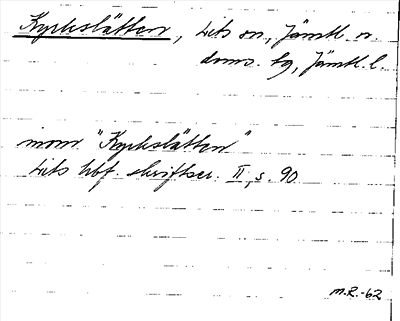 Kyrkslätten, Lits sn, Jämtl. n.
doms. tg, Jämtl. l.
mom "Kyrkslätten"
Lits hbf. skriftser. II, s. 90
M.R.-62